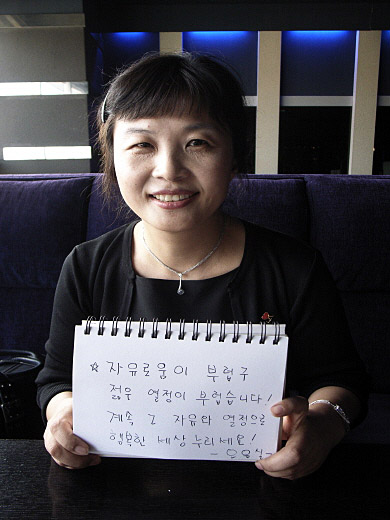 ☆ 자유로움이 부럽구
젊은 열정이 부럽습니다!
계속 그 자유와 열정으로
행복한 세상 누리세요!